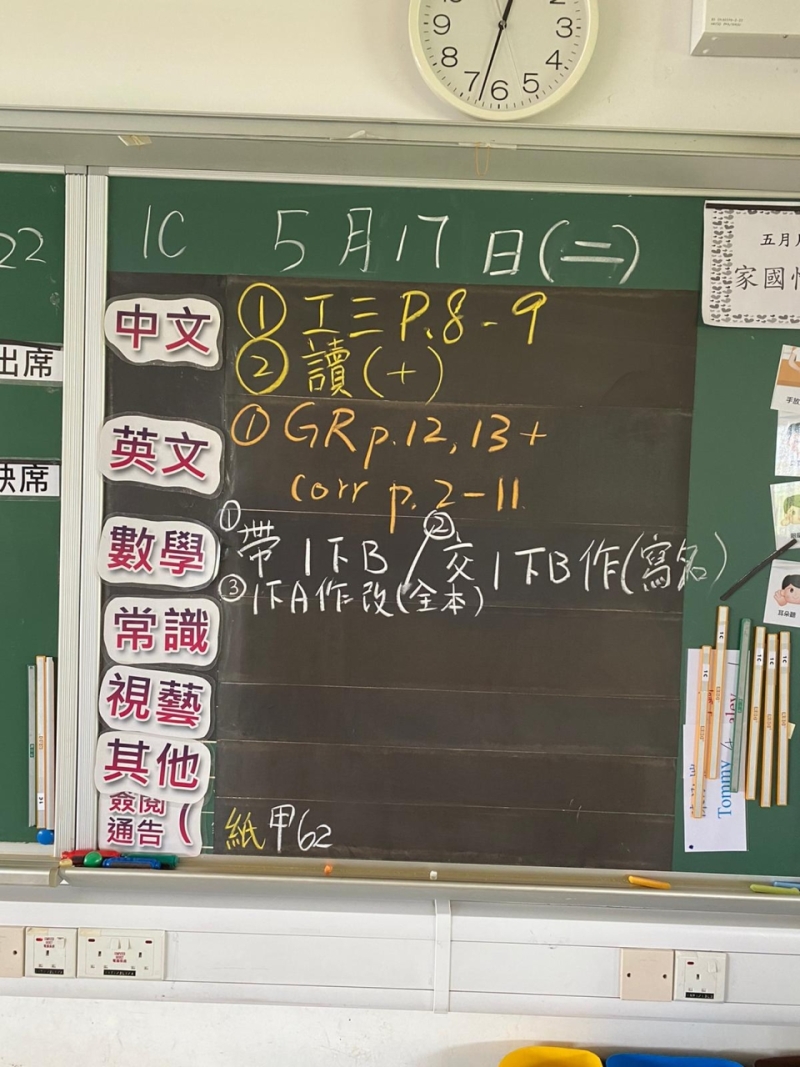 9
2
3
8
4
7
6
5
22
1C 5月17日(二)
出席
缺席
五月
家國
中文 ① 工三 P.8-9
② 讀(十)
英文 ① GR p.12, 13 +
corr p. 2-11
數學 ① 帶1下B / ② 交1下B作(寫名)
③ 1下A作改(全本)
常識
視藝
其他
簽閱
通告 (
紙 甲62
手放
耳朵聽
Tommy